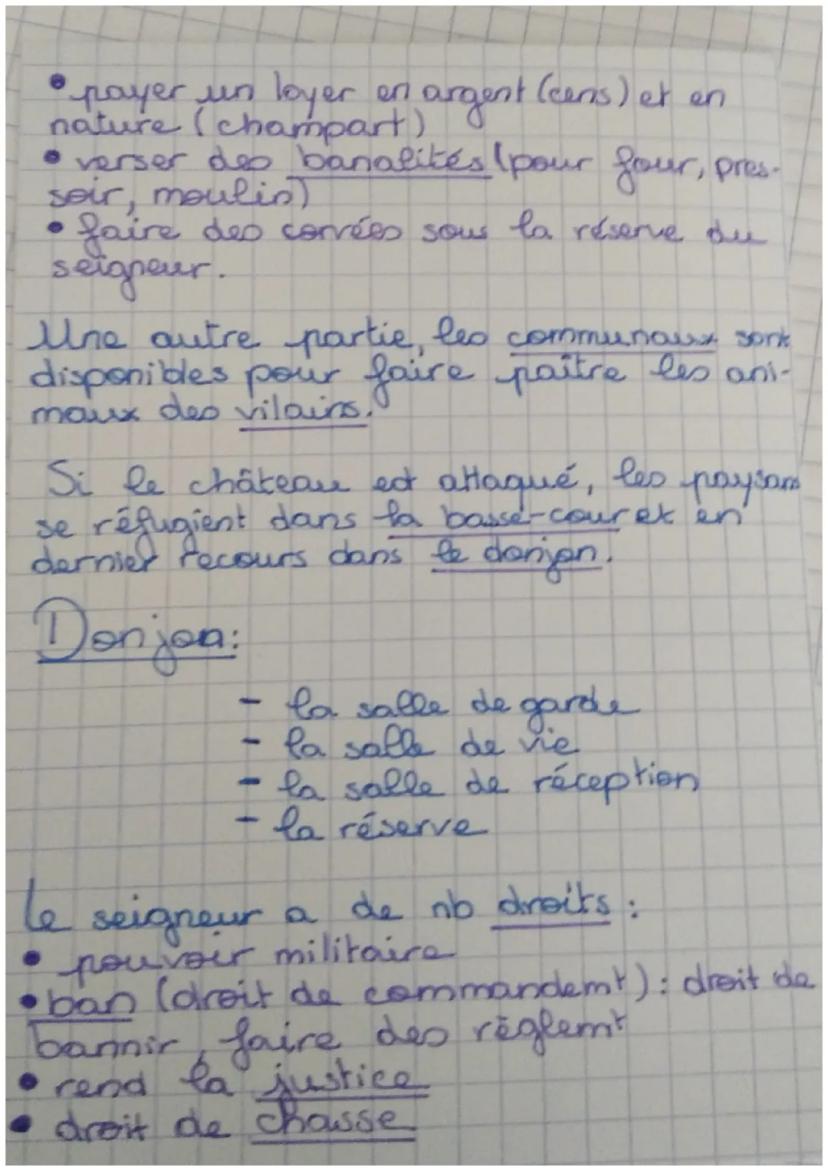 • payer un loyer en argent (cens) et en
nature (champart)
• verser des banalités (pour four, pres-
soir, moulin)
• faire des corvées sous la réserve du
seigneur.
Une autre partie, les communaux sont
disponibles pour faire paître les ani-
maux des vilains.
Si le château est attaqué, les paysans
se réfugient dans la basse-cour et en
dernier recours dans le donjon.
Donjon:
- la salle de garde
- la salle de vie
- la salle de réception
- la réserve
Le seigneur a de nb droits :
• pouvoir militaire
• ban (droit de commandemt) : droit de
bannir, faire des règlemt
• rend la justice
• droit de chasse